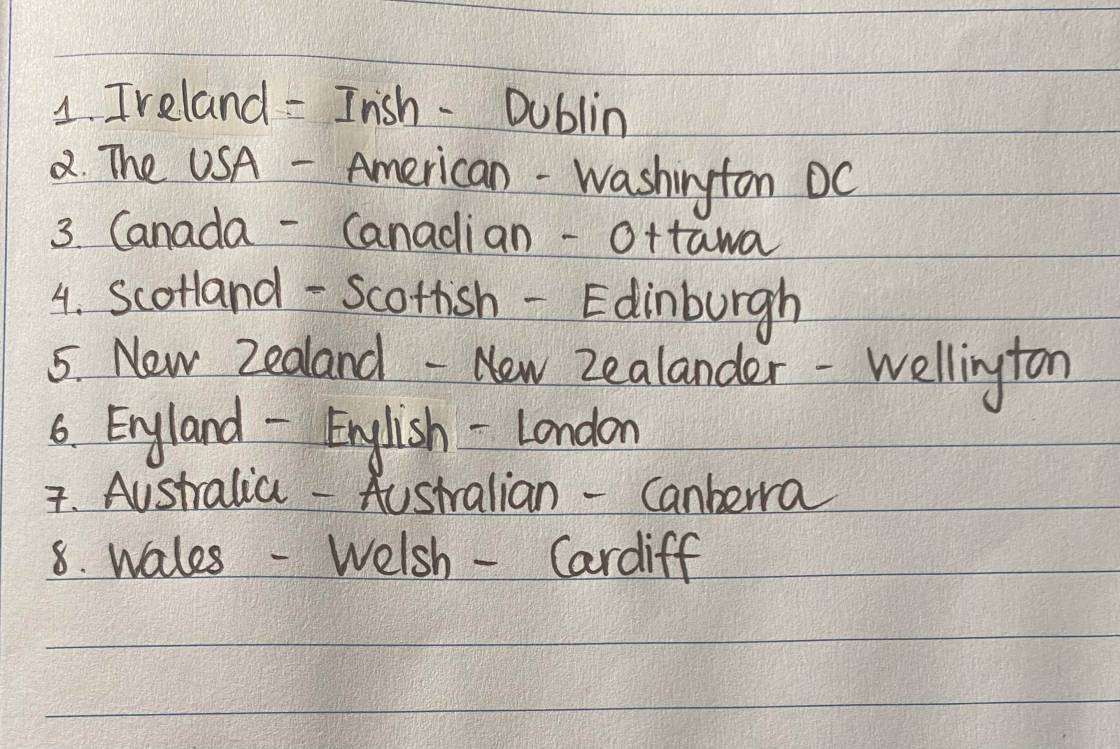 1. Ireland - Irish - Dublin
2. The USA - American - Washington DC
3. Canada - Canadian - Ottawa
4. Scotland - Scottish - Edinburgh
5. New Zealand - New Zealander - Wellington
6. England - English - London
7. Australia - Australian - Canberra
8. Wales - Welsh - Cardiff